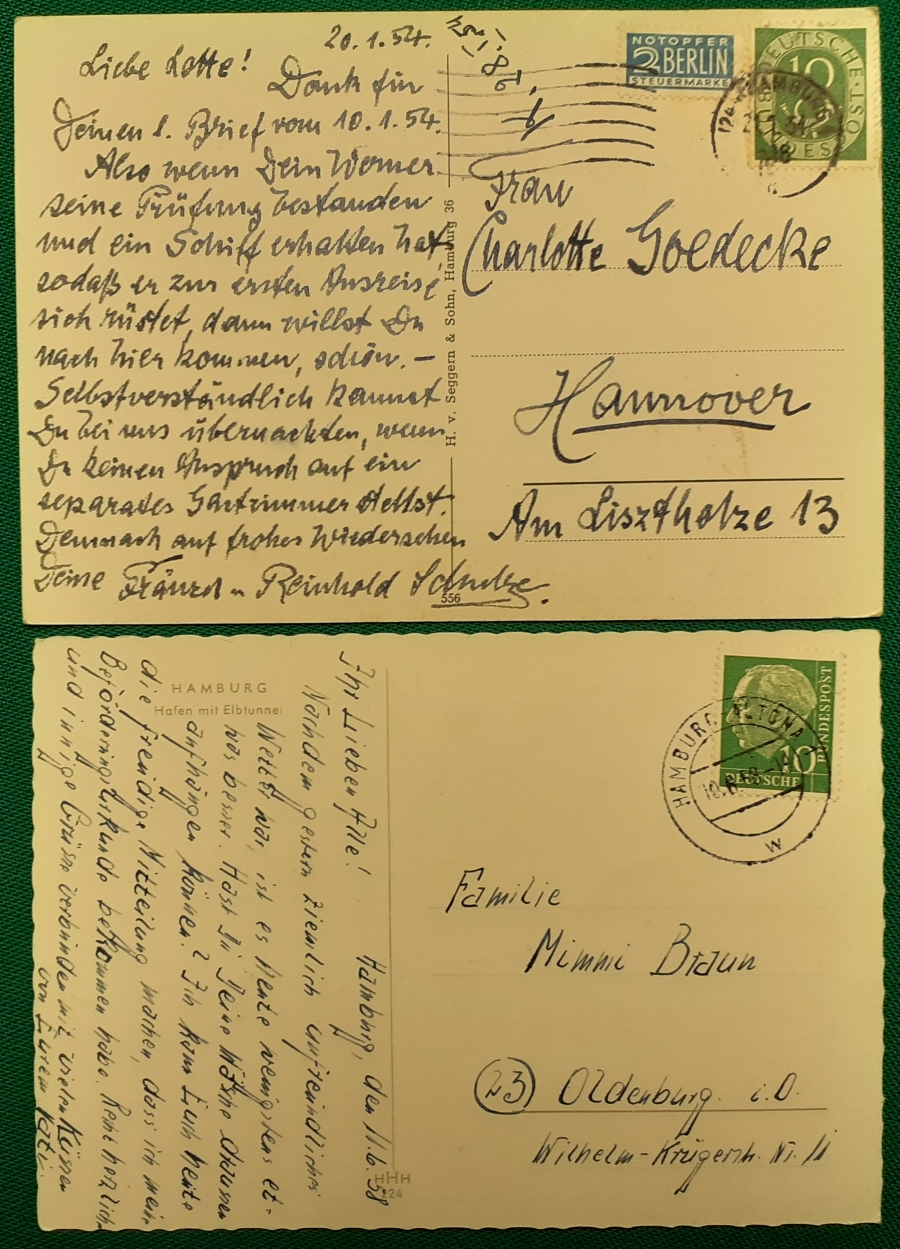 20.1.54.
Liebe Lotte!
Dank für
Deinen l. Brief vom 10.1.54.
Also wenn Dein Werner
seine Prüfung bestanden
und ein Schiff erhalten hat
sodaß er zur ersten Ausreise
sich rüstet, dann willst Du
nach hier kommen, schön. –
Selbstverständlich kannst
Du bei uns übernachten, wenn
Du keinen Anspruch auf ein
separates Gastzimmer stellst.
Demnach auf frohes Wiedersehen
Deine Fränzel u Reinhold Schulze.
H. v. Seggern & Sohn, Hamburg 36
556
NOTOPFER
2 BERLIN
STEUERMARKE
DEUTSCHE
10
BUNDESPOST
HAMBURG
Frau
Charlotte Goedecke
Hannover
Am Liszt holze 13
HAMBURG
Hafen mit Elbtunnel
Hamburg, den 11.6.58
Ihr Lieben Alle!
Nachdem gestern ziemlich unfreundliches
Wetter war, ist es heute wenigstens et-
was besser. Hast Du Deine Wäsche draussen
aufhängen können? Ich kann Euch heute
die freudige Mitteilung machen, dass ich meine
Beförderungsurkunde bekommen habe. Recht herzliche
und innige Grüsse verbunden mit vielen Küssen
von Eurem
HHH
224
DEUTSCHE
BUNDESPOST
10
HAMBURG-ALTONA
w
Familie
Mimmi Braun
(23) Oldenburg i.O.
Wilhelm-Krügerstr. Nr. 11